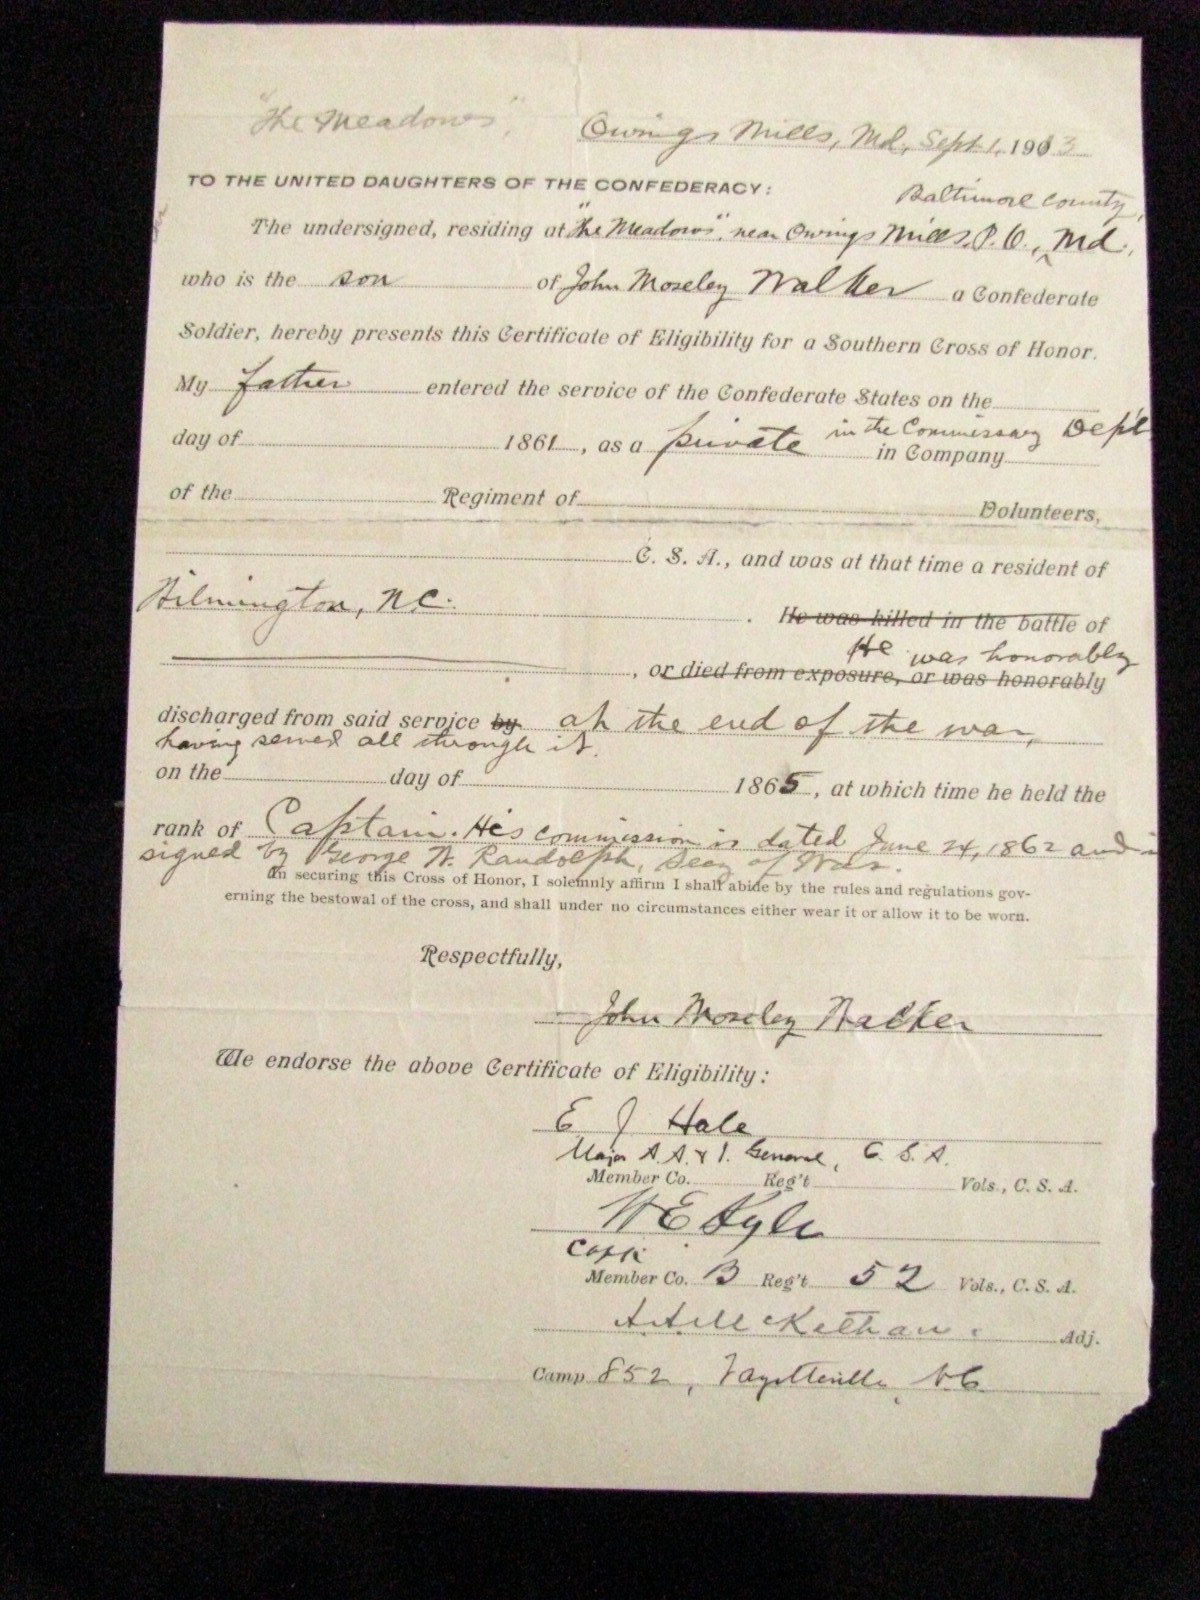 "The Meadows", Owings Mills, Md., Sept 1, 1913
TO THE UNITED DAUGHTERS OF THE CONFEDERACY:
Baltimore County,
The undersigned, residing at "The Meadows", near Owings Mills P. O., Md.,
who is the son of John Moseley Walker a Confederate
Soldier, hereby presents this Certificate of Eligibility for a Southern Cross of Honor.
My father entered the service of the Confederate States on the
day of 1861, as a private in the Commissary Dept
in Company
of the Regiment of Volunteers,
C. S. A., and was at that time a resident of
Wilmington, N.C. . He was killed in the battle of
He was honorably
, or died from exposure, or was honorably
discharged from said service by at the end of the war,
having served all through it.
on the day of 1865, at which time he held the
rank of Captain. His commission is dated June 24, 1862 and is
signed by George W. Randolph, Secy of War.
In securing this Cross of Honor, I solemnly affirm I shall abide by the rules and regulations gov-
erning the bestowal of the cross, and shall under no circumstances either wear it or allow it to be worn.
Respectfully,
John Moseley Walker
We endorse the above Certificate of Eligibility:
E J Hale
Major A. A. & I. General, C. S. A.
Member Co. Reg't Vols., C. S. A.
W E Kyle
Capt.
Member Co. B Reg't 52 Vols., C. S. A.
A. A. McKethan. Adj.
Camp 852, Fayetteville, N.C.